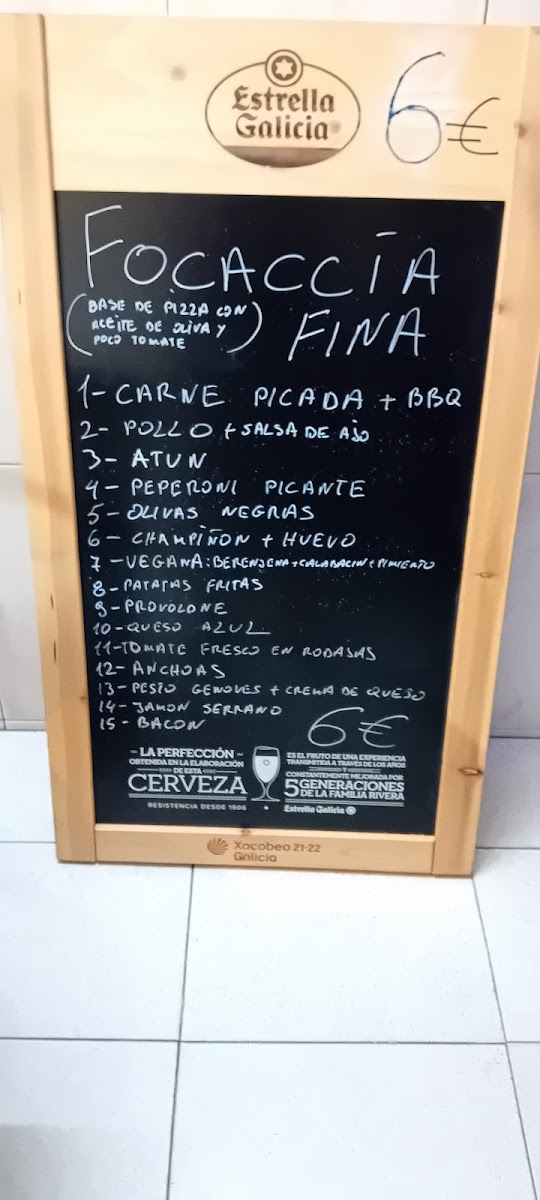 Estrella
Galicia
6€
FOCACCIA
(BASE DE PIZZA CON
ACEITE DE OLIVA Y
POCO TOMATE)
FINA
1- CARNE PICADA + BBQ
2- POLLO + SALSA DE AJO
3- ATUN
4- PEPERONI PICANTE
5- OLIVAS NEGRAS
6- CHAMPIÑON + HUEVO
7-VEGANA: BERENJENA+CALABACIN+PIMIENTO
8- PATATAS FRITAS
9- PROVOLONE
10- QUESO AZUL
11-TOMATE FRESCO EN RODAJAS
12- ANCHOAS
13- PESTO GENOVES + CREMA DE QUESO
14- JAMON SERRANO
15- BACON
6€
LA PERFECCIÓN
OBTENIDA EN LA ELABORACIÓN
DE ESTA
CERVEZA
RESISTENCIA DESDE 1906
ES EL FRUTO DE UNA EXPERIENCIA
TRANSMITIDA A TRAVÉS DE LOS AÑOS
Y
CONSTANTEMENTE MEJORADA POR
5 GENERACIONES
DE LA FAMILIA RIVERA
Estrella Galicia
Xacobeo 21·22
Galicia